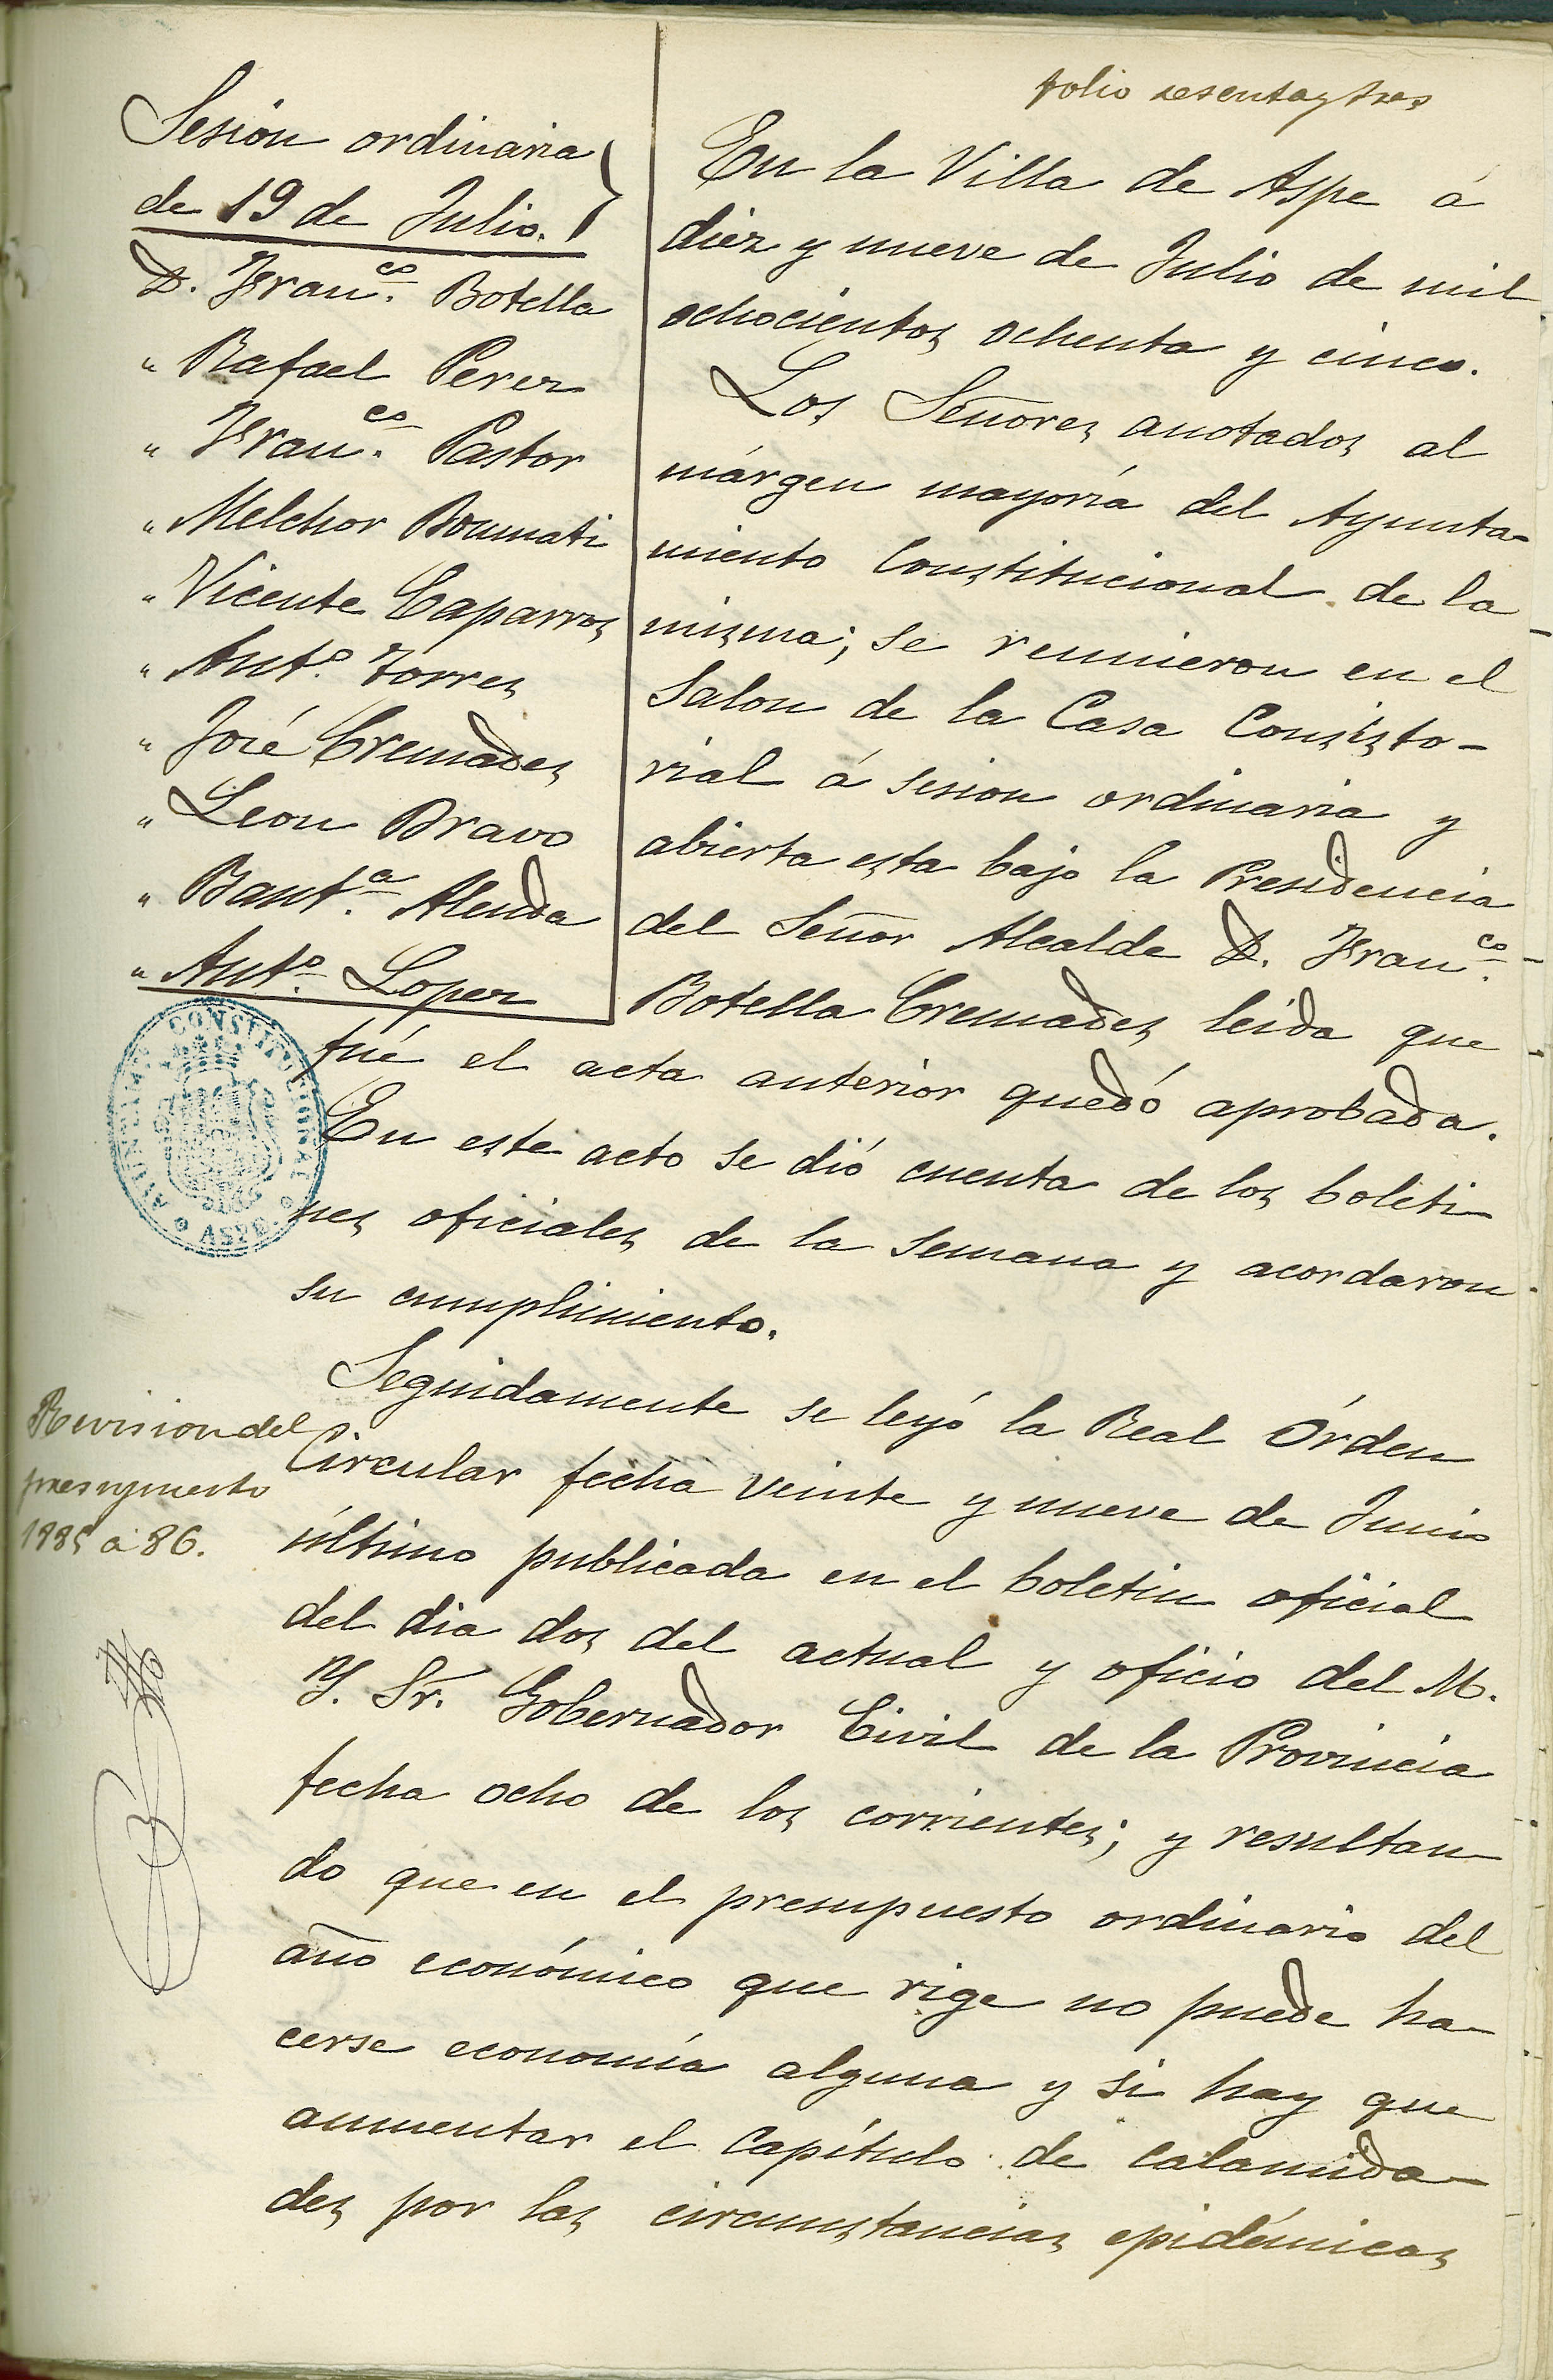 folio sesentaytres
Sesion ordinaria
de 19 de Julio.
D. Fran.co Botella
" Rafael Perez
" Fran.co Pastor
" Melchor Boumati
" Vicente Caparros
" Ant.o Torres
" José Cremades
" Leon Bravo
" Baut.a Alenda
" Ant.o Lopez
En la Villa de Aspe á
diez y nueve de Julio de mil
ochocientos ochenta y cinco.
Los Señores anotados al
márgen mayoría del Ayunta-
miento Constitucional de la
misma; se reunieron en el
Salon de la Casa Consisto-
rial á sesion ordinaria y
abierta esta bajo la Presidencia
del Señor Alcalde D. Fran.co
Botella Cremades leida que
fué el acta anterior quedó aprobada.
En este acto se dió cuenta de los boleti-
nes oficiales de la semana y acordaron
su cumplimiento.
Seguidamente se leyó la Real Órden
Circular fecha veinte y nueve de Junio
último publicada en el boletin oficial
del dia dos del actual y oficio del M.
Y. Sr. Gobernador Civil de la Provincia
fecha ocho de los corrientes; y resultan
do que en el presupuesto ordinario del
año económico que rige no puede ha-
cerse economía alguna y si hay que
aumentar el Capítulo de Calamida-
des por las circunstancias epidémicas
Revision del
presupuesto
1885 a 86.
AYUNTAMIENTO CONSTITUCIONAL
ASPE